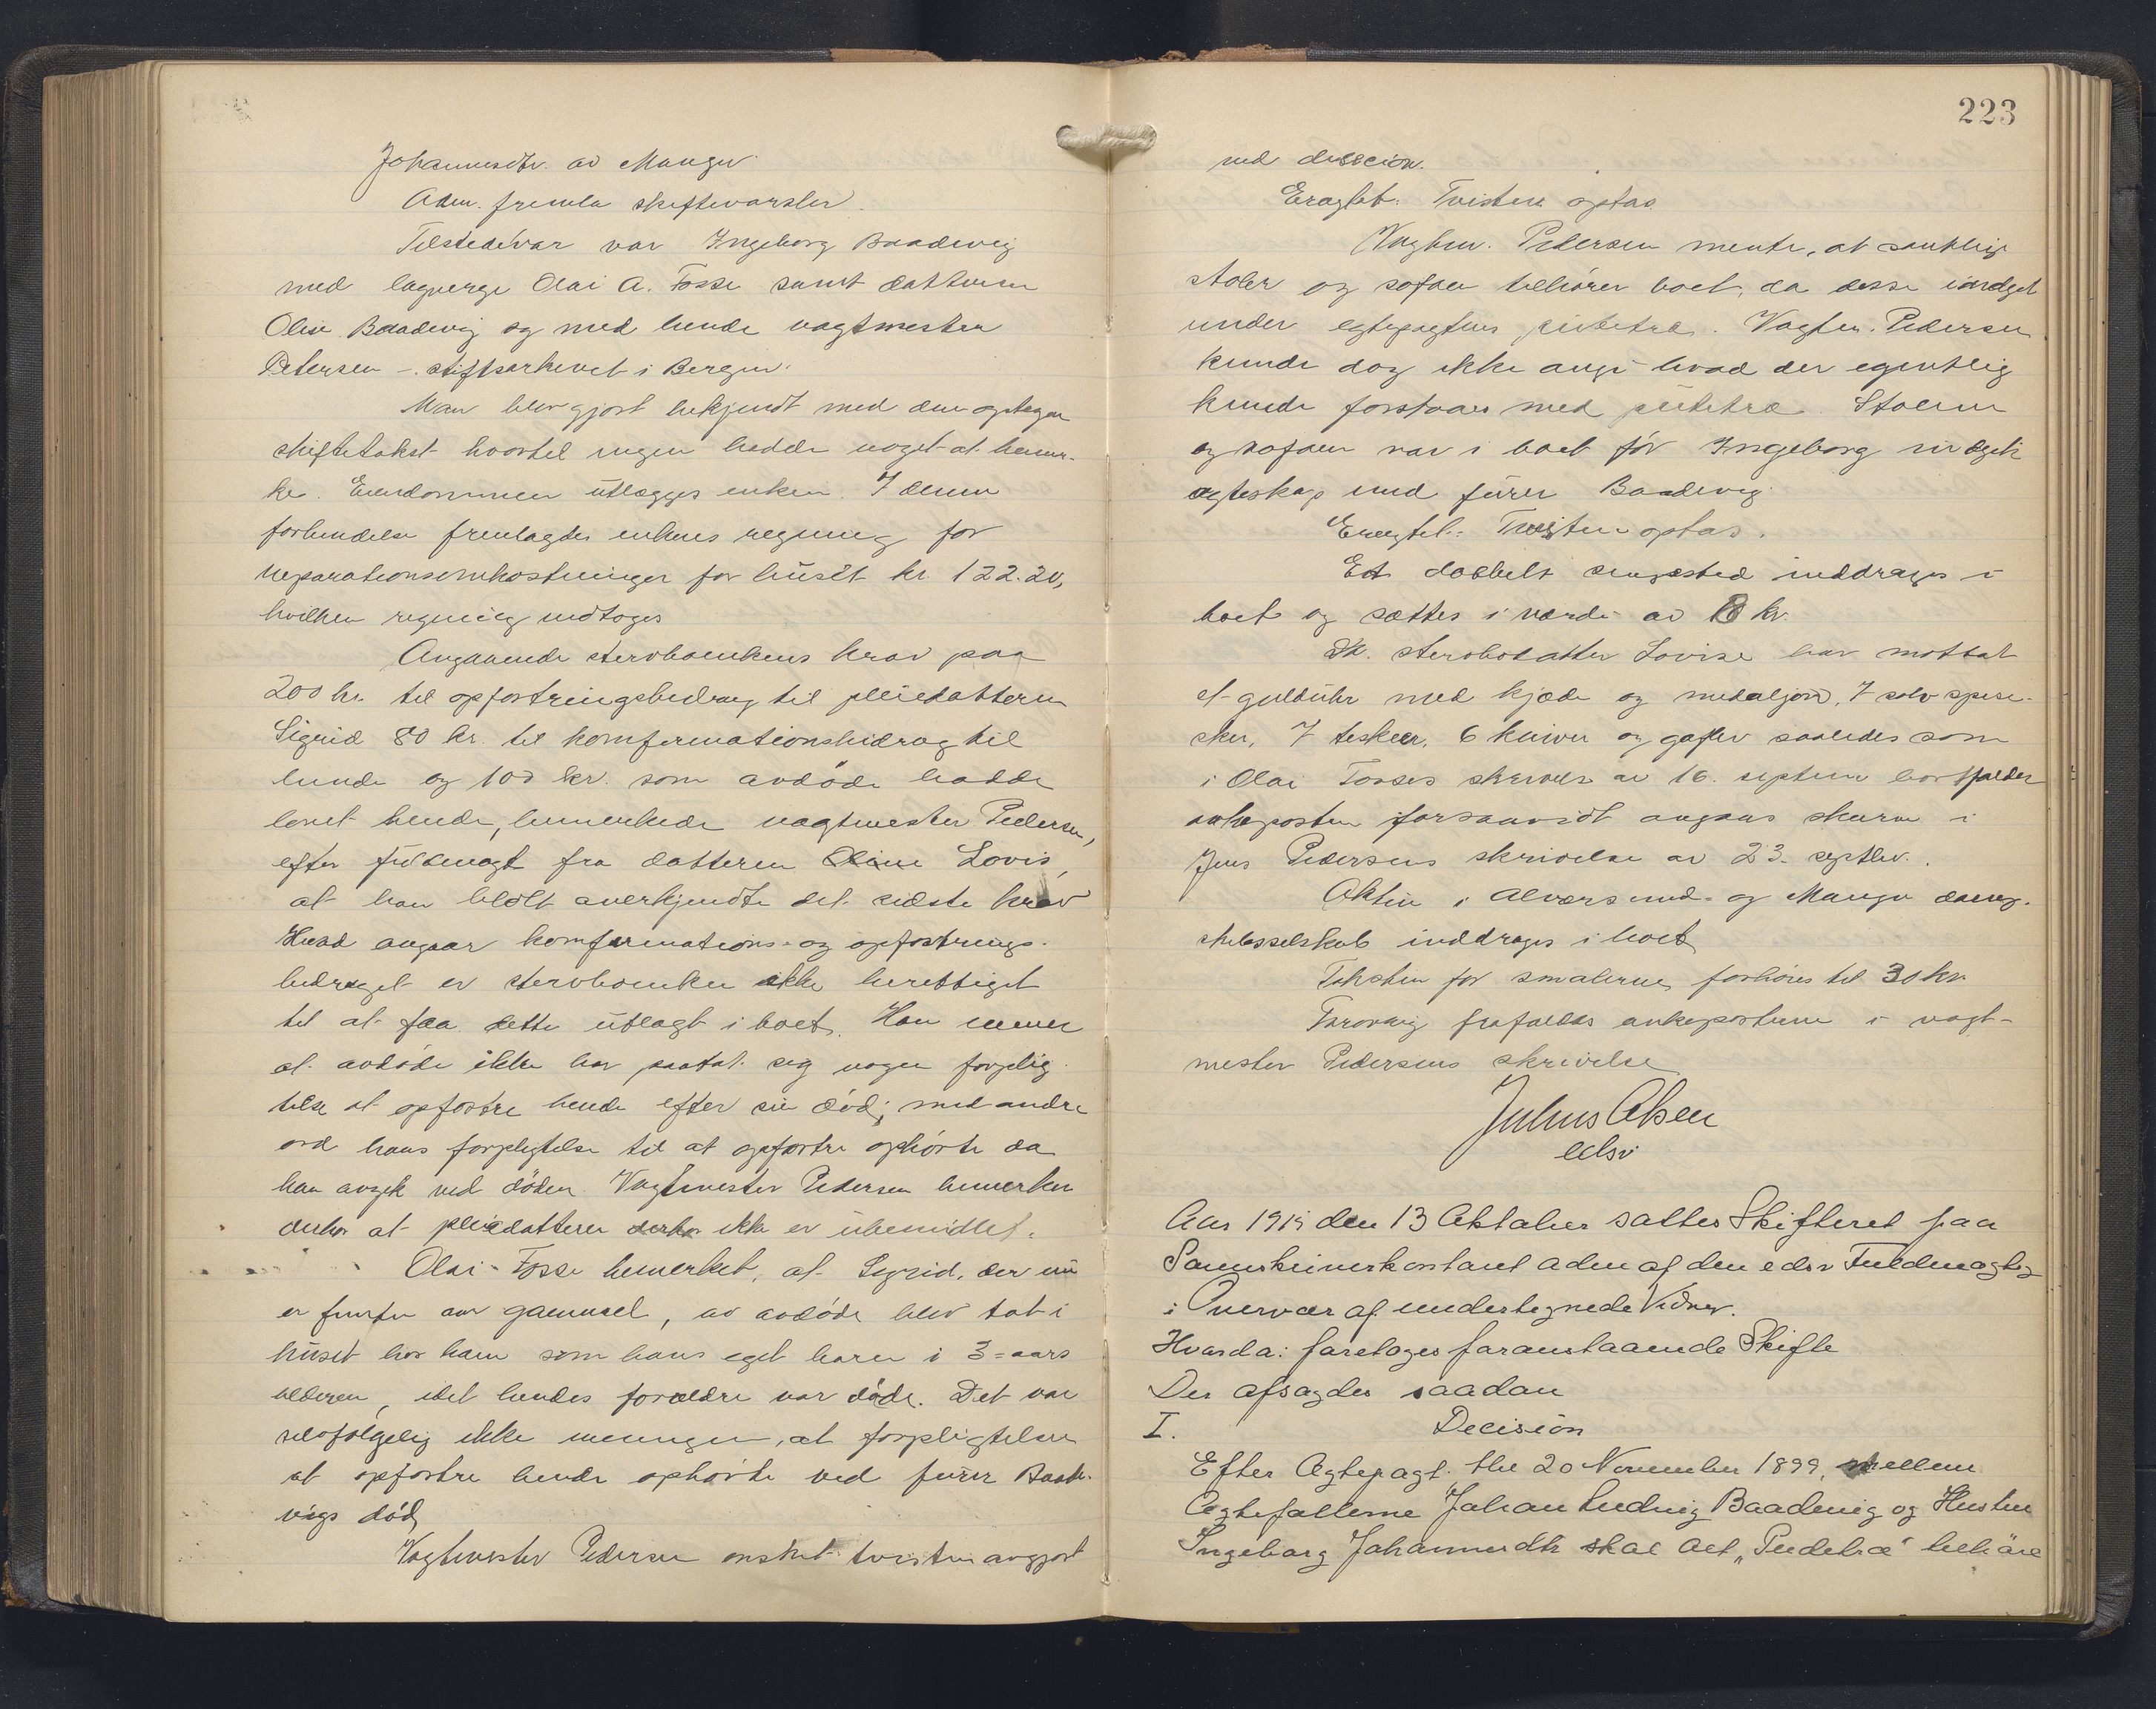 Johannesdtr. av Manger
Adm. fremla skiftevarsler.
Tilstedevar var Ingeborg Baadevig
med lagverge Olai A. Fosse samt datteren
Olise Baadevig og med hende vagtmester
Petersen - stiftsarkivet i Bergen.
Man blev gjort bekjendt med den optagne
skiftetakst hvortil ingen hadde noget at bemer-
ke. Eiendommen utlægges enken. I denne
forbindelse fremlagdes enkens regning for
reparationsomkostninger for huset kr. 122.20,
hvilken regning vedtoges
Angaaende sterboenkens krav paa
200 kr. til opfostringsbidrag til pleiedatteren
Sigrid 80 kr. til konfirmationsbidrag til
hende og 100 kr. som avdöde hadde
lovet hende, bemerkede vagtmester Pedersen,
efter fuldmagt fra datteren Lovis,
at han blott anerkjendte det sidste krav
Hvad angaar konfirmations- og opfostrings-
bidraget er stervboenken ikke berettiget
til at faa dette utlagt i boet. Han mener
at avdöde ikke har paatat sig nogen forplig
telse at opfostre hende efter sin död; med andre
ord hans forpligtelse til at opfostre ophörte da
han avgik ved döden. Vagtmester Pedersen bemerker
derhos at pleiedatteren ikke er ubemidlet.
Olai Fosse bemerket, at Sigrid, der nu
er femten aar gammel, av avdöde blev tat i
huset hos ham som hans eget barn i 3-aars
alderen, idet hendes forældre var döde. Det var
selvfölgelig ikke meningen, at forpligtelsen
at opfostre hende ophörte ved furer Baade-
vigs död
Vagtmester Pedersen önsket tvisten avgjort
223
ved decision.
Eragtet: Tvisten optas
Vagtm. Pedersen mente, at samtlige
stoler og sofaen tilhörer boet, da disse indgik
under egtepagtens pinletræ. Vagtm. Pedersen
kunde dog ikke angi hvad der egentlig
kunde forstaaes med. Stolerne
og sofaen var i boet för Ingeborg indgik
egteskap med furer Baadevig.
Eragtet: Tvisten optas.
Et dobbelt sengested inddrages i
boet og sættes i værdi av 8 kr.
Da stervbodatter Lovise har mottat
et guldur med kjæde og medaljon, 7 sölv spise-
skeer, 7 teskeer, 6 kniver og gafler saaledes som
i Olai Fosses skrivelse av 16. septem bortfalder
ankeposten forsaavidt angaar skeerne i
Jens Pedersens skrivelse av 23. septbr.
Aktien i Alversund- og Manger damp-
skibsselskab inddrages i boet
Taksten for smalerne forhöies til 30 kr.
Forövrig frafaldes ankeposterne i vagt-
mester Pedersens skrivelse
Julius Olsen
edsv
Aar 1915 den 13 Oktober sattes Skifteret paa
Sorenskriverkontoret adm af den edsv Fuldmægtig
i Overvær af undertegnede Vidner.
Hvorda: foretoges foranstaaende Skifte
Der afsagdes saadan
I. Decision
Efter Ægtepagt thl 20 November 1899, mellem
Ægtefællerne Johan Ludvig Baadevig og Hustru
Ingeborg Johannesdtr skal Alt „Pudetræ" tilhöre